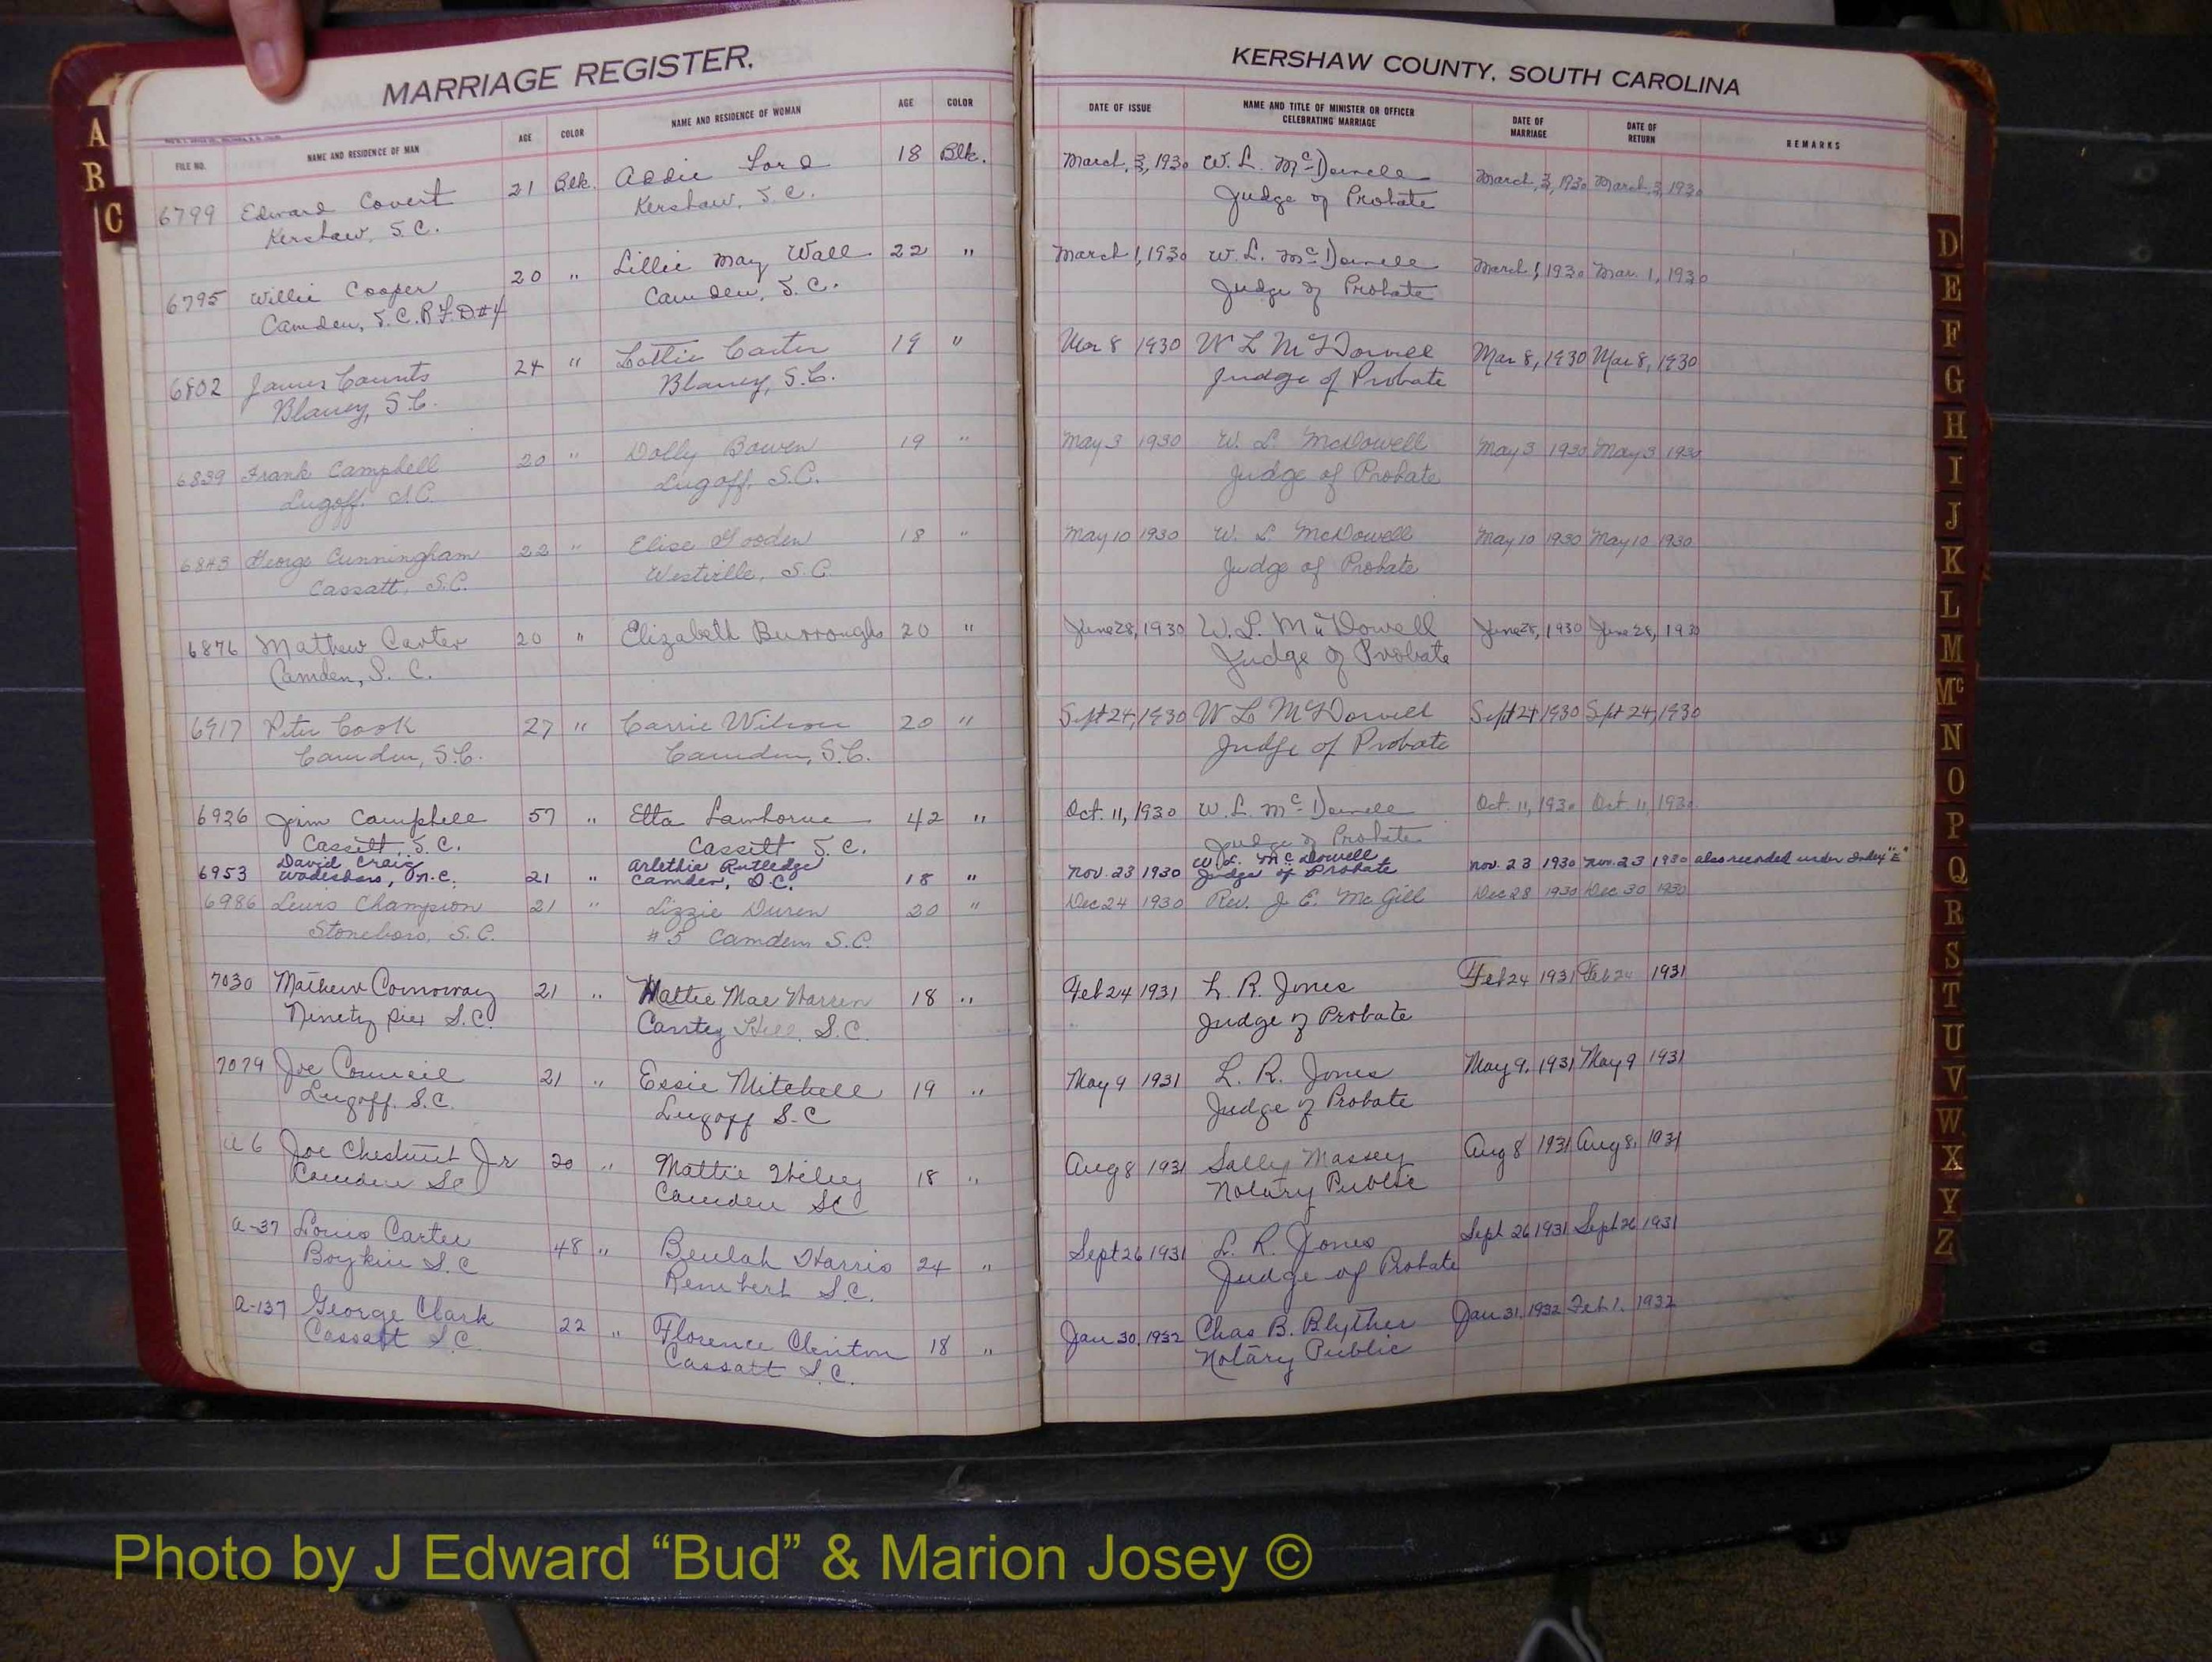 MARRIAGE REGISTER.
KERSHAW COUNTY, SOUTH CAROLINA
FILE NO. NAME AND RESIDENCE OF MAN AGE COLOR NAME AND RESIDENCE OF WOMAN AGE COLOR DATE OF ISSUE NAME AND TITLE OF MINISTER OR OFFICER CELEBRATING MARRIAGE DATE OF MARRIAGE DATE OF RETURN REMARKS
6799 Edward Covert 21 Blk. Addie Lord 18 Blk. March, 3, 1930 W. L. McDowell March, 3, 1930 March, 3, 1930
Kershaw, S.C. Kershaw, S.C. Judge of Probate
6795 Willie Cooper 20 " Lillie May Wall 22 " March 1, 1930 W. L. McDowell March 1, 1930 Mar. 1, 1930
Camden, S.C. R.F.D. #4 Camden, S.C. Judge of Probate
6802 James Counts 24 " Lottie Carter 19 " Mar 8 1930 W L McDowell Mar 8, 1930 Mar 8, 1930
Blaney, S.C. Blaney, S.C. Judge of Probate
6839 Frank Campbell 20 " Dolly Bowen 19 " May 3 1930 W. L. McDowell May 3 1930 May 3 1930
Lugoff, S.C. Lugoff, S.C. Judge of Probate
6843 George Cunningham 22 " Elise Gooden 18 " May 10 1930 W. L McDowell May 10 1930 May 10 1930
Cassatt, S.C. Westville, S.C. Judge of Probate
6876 Mathew Carter 20 " Elizabeth Burroughs 20 " June 28, 1930 W. L. McDowell June 28, 1930 June 28, 1930
Camden, S. C. Judge of Probate
6917 Peter Cook 27 " Carrie Wilson 20 " Sept 24, 1930 W L McDowell Sept 24 1930 Sept 24, 1930
Camden, S.C. Camden, S.C. Judge of Probate
6926 Jim Campbell 57 " Etta Lawhorne 42 " Oct. 11, 1930 W. L. McDowell Oct. 11, 1930 Oct. 11, 1930
Cassett, S.C. Cassett S.C. Judge of Probate
6953 David Craig 21 " Arlethia Rutledge 18 " Nov. 23 1930 W. L. McDowell Nov. 23 1930 Nov. 23 1930 also recorded under Index "E"
Wadesboro, N.C. Camden, S.C. Judge of Probate
6986 Lewis Champion 21 " Lizzie Duren 20 " Dec 24 1930 Rev. J E. McGill Dec 28 1930 Dec 30 1930
Stoneboro, S.C. #5 Camden S.C.
7030 Mathew Connoway 21 " Mattie Mae Warren 18 " Feb 24 1931 L. R. Jones Feb 24 1931 Feb 24 1931
Ninety Six S.C. Cantey Hill, S.C. Judge of Probate
7079 Joe Council 21 " Essie Mitchell 19 " May 9 1931 L. R. Jones May 9, 1931 May 9 1931
Lugoff. S.C. Lugoff S.C Judge of Probate
A 6 Joe Chestnut Jr 20 " Mattie 18 " Aug 8 1931 Sally Massey Aug 8 1931 Aug 8, 1931
Camden SC Camden SC Notary Public
A-37 Louis Carter 48 " Beulah Harris 24 " Sept 26 1931 L. R. Jones Sept 26 1931 Sept 26 1931
Boykin S.C Rembert S.C. Judge of Probate
A-137 George Clark 22 " Florence Clinton 18 " Jan 30, 1932 Chas B. Blyther Jan 31, 1932 Feb 1, 1932
Cassatt S.C. Cassatt S.C. Notary Public
A
B
C
D
E
F
G
H
I
J
K
L
M
Mc
N
O
P
Q
R
S
T
U
V
W
X
Y
Z
Photo by J Edward “Bud” & Marion Josey ©